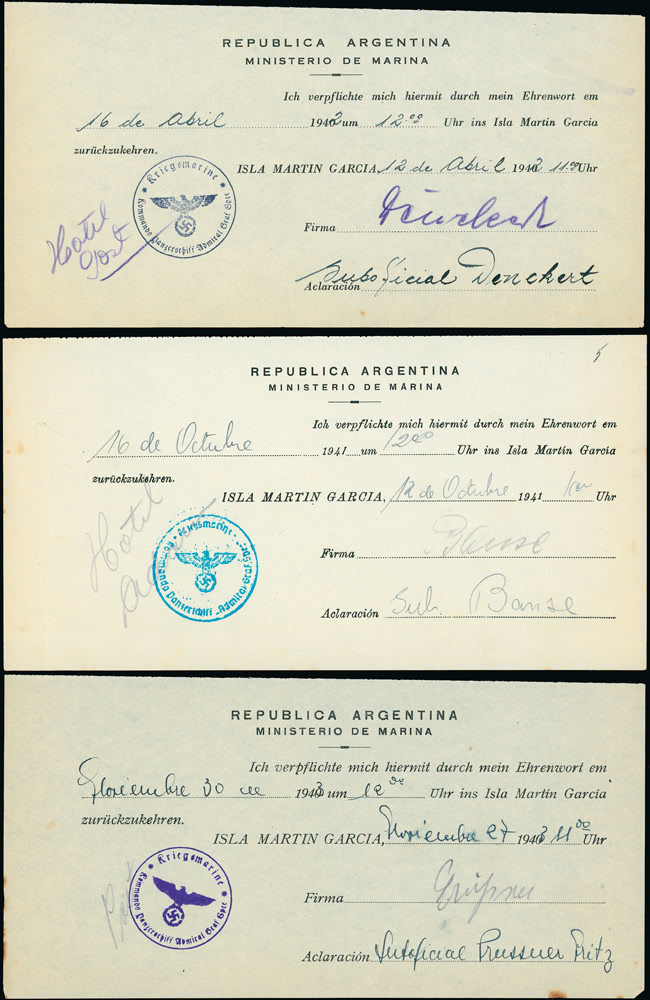 REPUBLICA ARGENTINA
MINISTERIO DE MARINA
Ich verpflichte mich hiermit durch mein Ehrenwort em
16 de Abril 1942 um 12.00 Uhr ins Isla Martin Garcia
zurückzukehren.
ISLA MARTIN GARCIA, 12 de Abril 1942 11.00 Uhr
Kriegsmarine
Kommando Panzerschiff Admiral Graf Spee
Hotel
Firma
Aclaración Suboficial Denckert
5
REPUBLICA ARGENTINA
MINISTERIO DE MARINA
Ich verpflichte mich hiermit durch mein Ehrenwort em
16 de Octubre 1941 um 1200 Uhr ins Isla Martín García
zurückzukehren.
ISLA MARTIN GARCIA, 12 de Octubre 1941 Uhr
Hotel
Kriegsmarine
Kommando Panzerschiff „Admiral Graf Spee"
Firma Banse
Aclaración Sub. Banse
REPUBLICA ARGENTINA
MINISTERIO DE MARINA
Ich verpflichte mich hiermit durch mein Ehrenwort em
Noviembre 30 1943 um 12 00 Uhr ins Isla Martín García
zurückzukehren.
ISLA MARTIN GARCIA, Noviembre 27 1943 11 00 Uhr
Kriegsmarine
Kommando Panzerschiff Admiral Graf Spee
Firma
Aclaración Suboficial Prussner Fritz